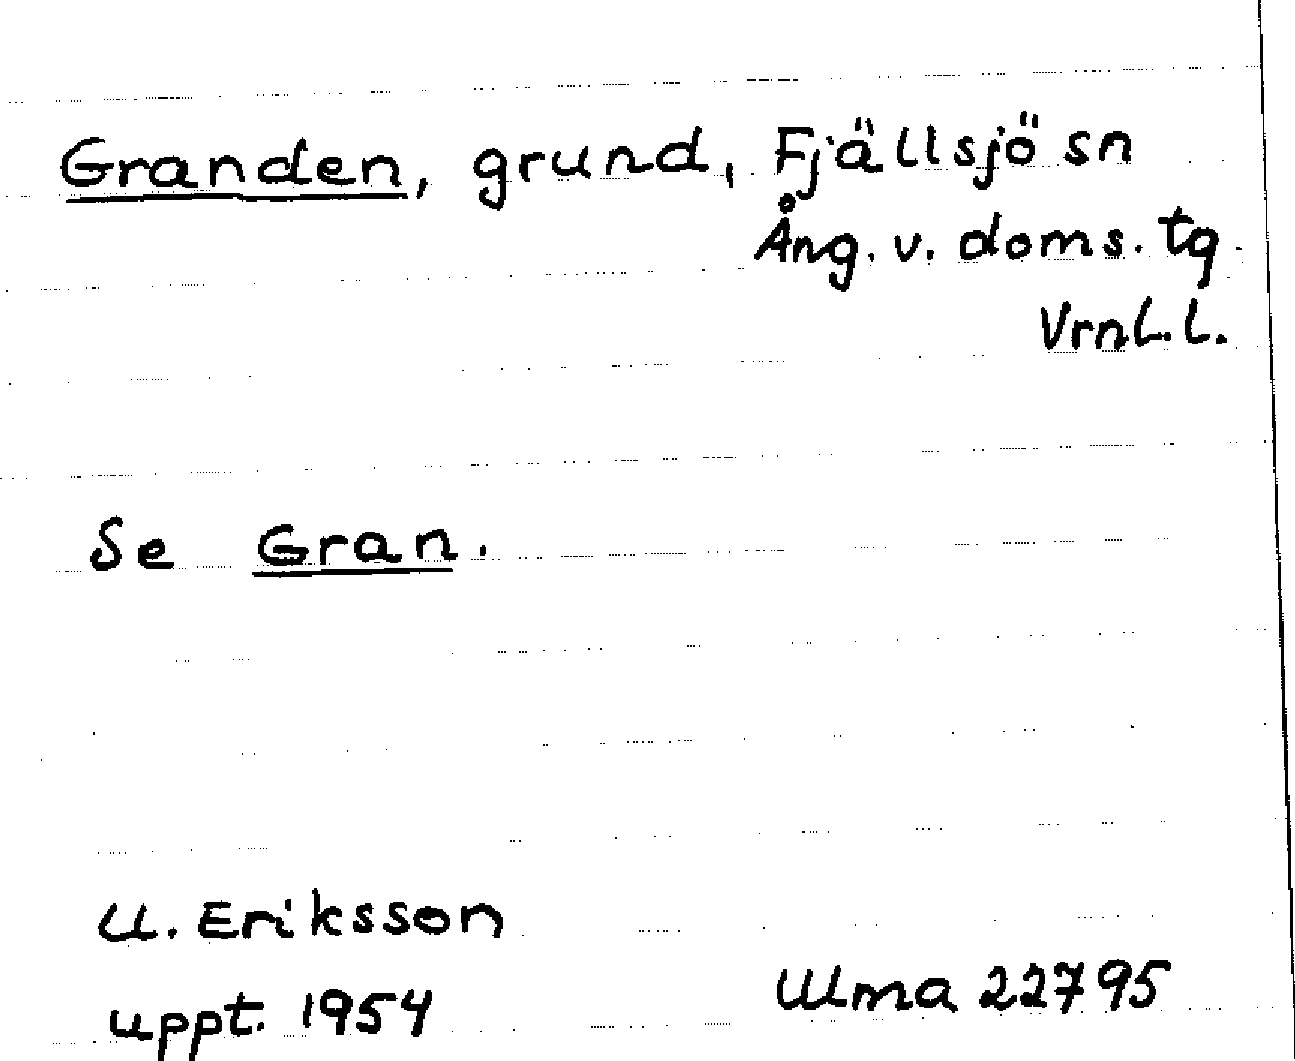 Granden, grund, Fjällsjö sn
Ång. v. doms. tg.
Vrnl. l.
Se Gran.
U. Eriksson
uppt. 1954
Ulma 22795